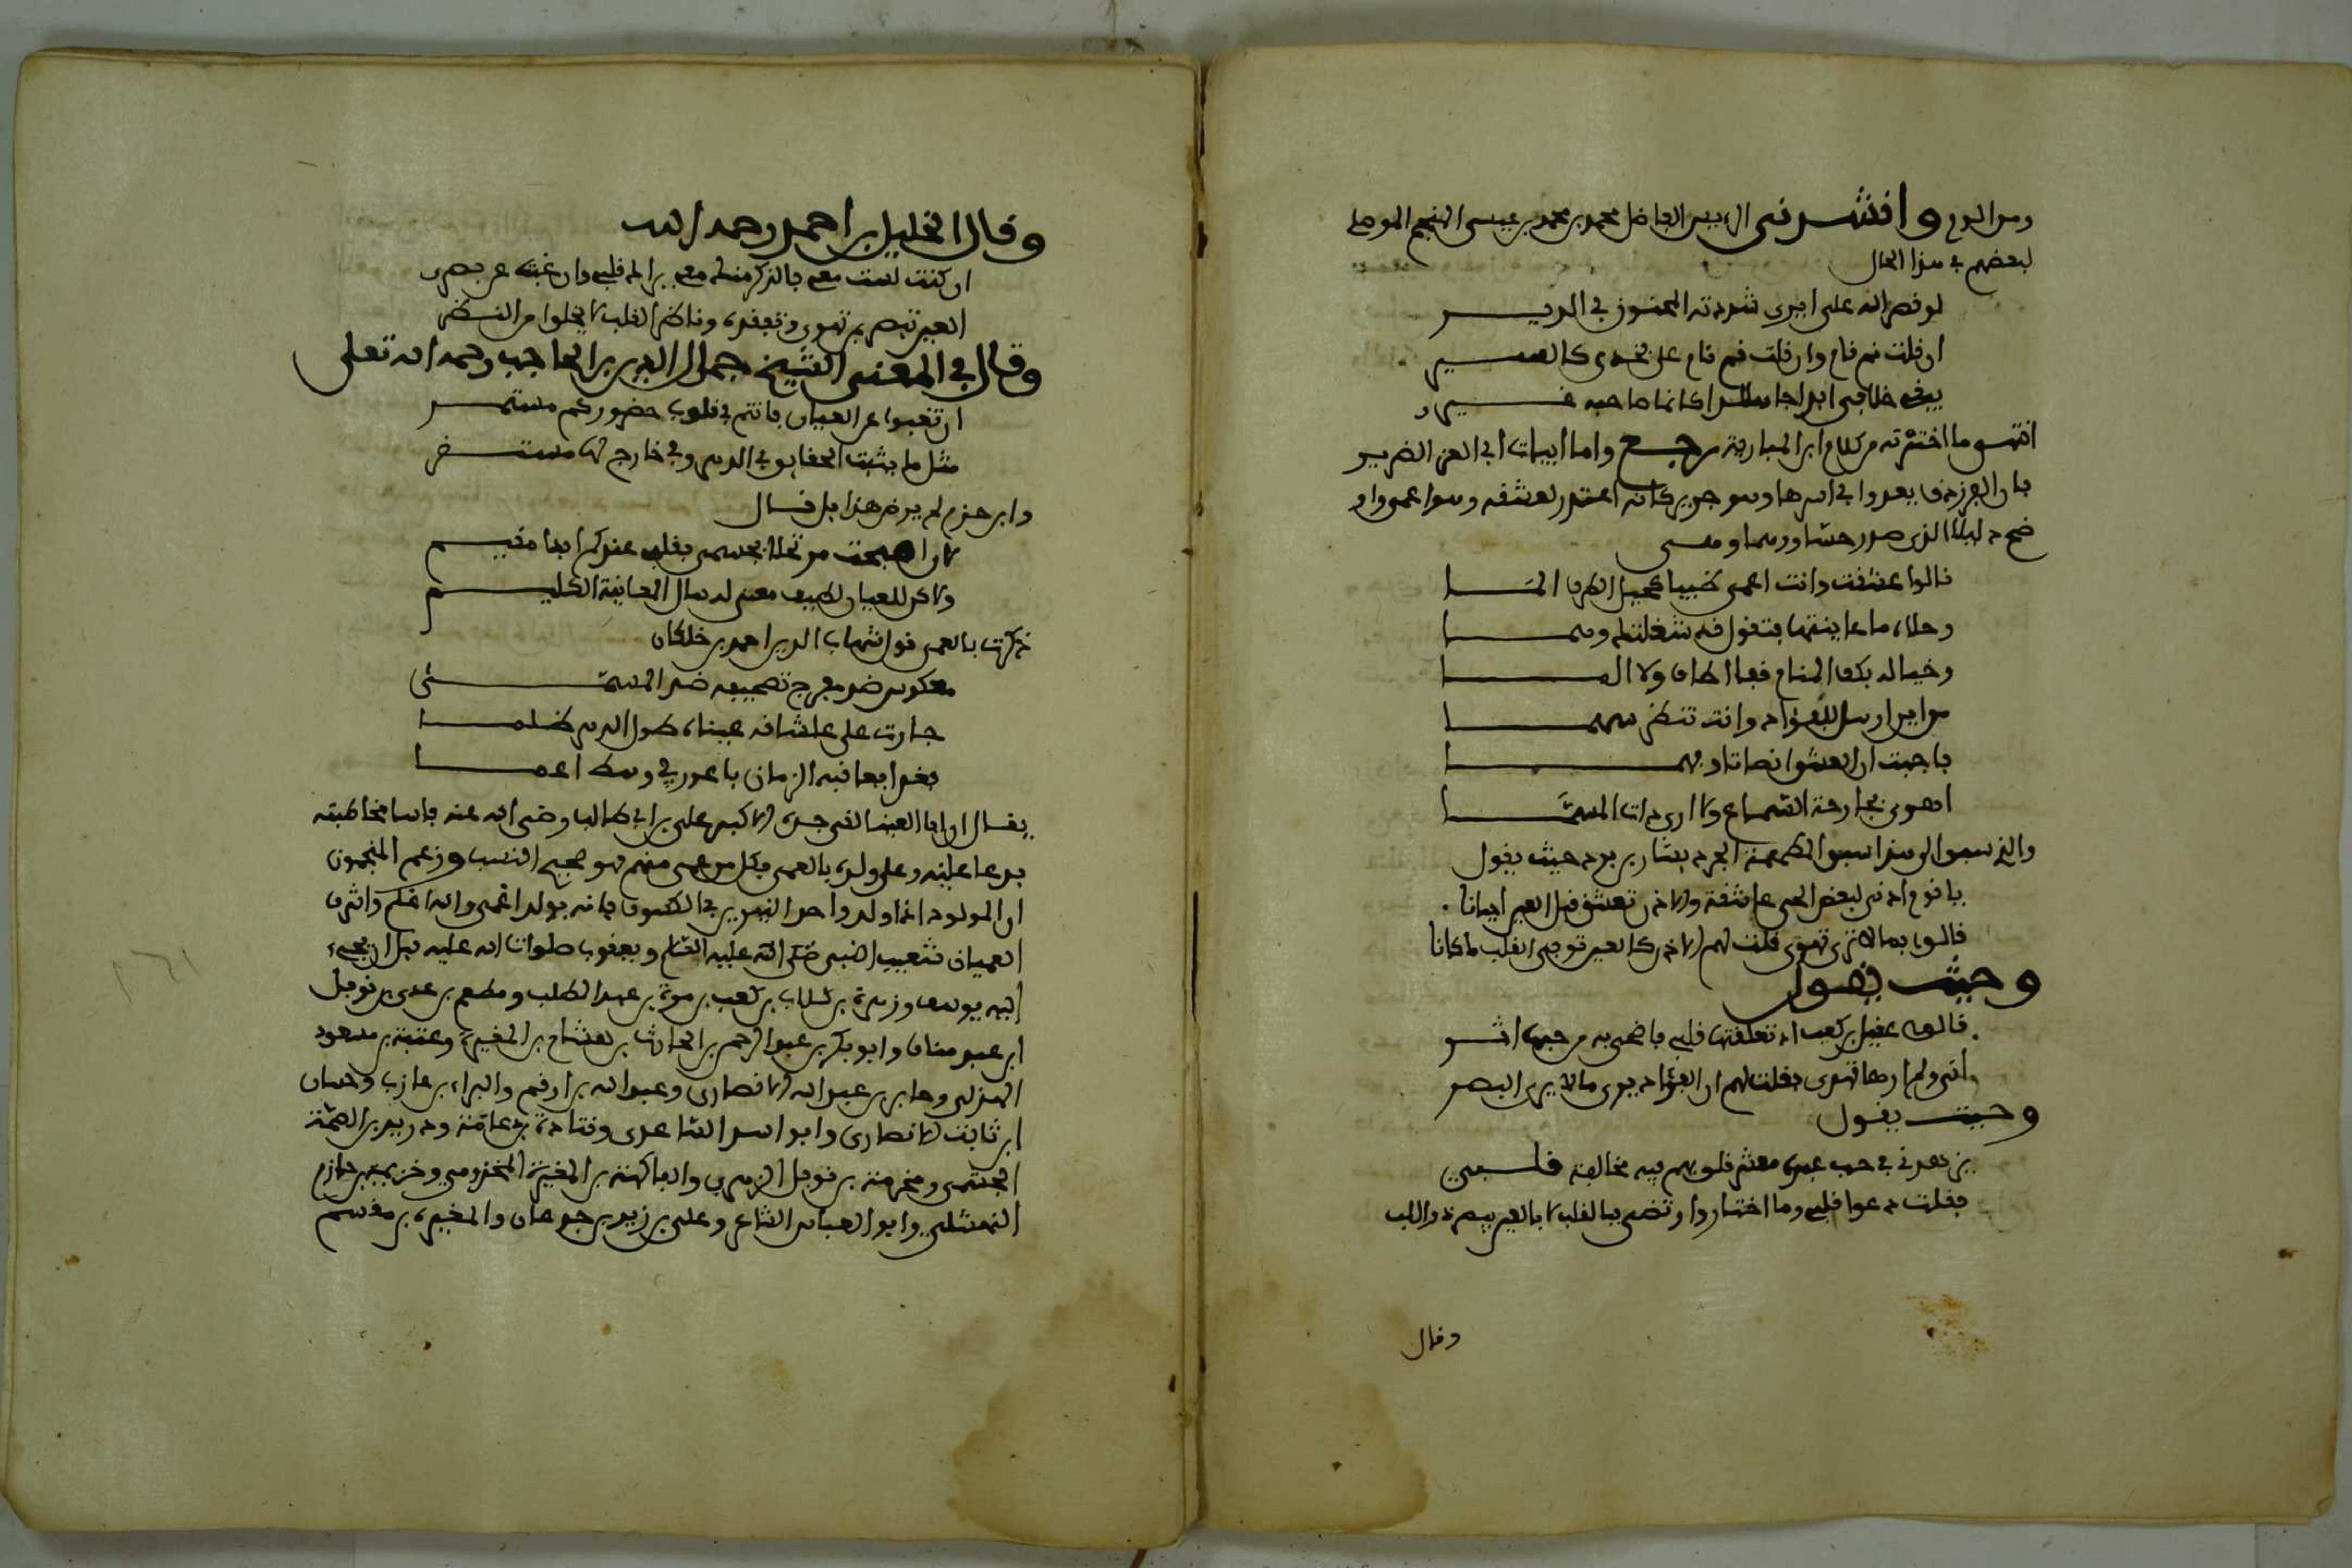 وانشدني الرييس الفاضل محمد بن محمد بن عيسى المنجم الموصلي
لبعضهم في هذا الحال
لو نصر الله على ايري شددته المجنون في الدير
ان قلت نم قام وان قلت قم نام على فخدي كالسير
يبغي خلافي ابدا جاهدا كانما صاحبه غيري
انتهى ما اخترته من كلام ابن الهبارية رجع واما ابيات ابي العز الضرير
قالوا عشقت وانت اعمى ظبيا كحيل الطرف المى
وحلاه ما عاينتها فتقول قد شغلتك وهما
وخياله بك في المنام فما اطاف ولا الما
من اين ارسل للفؤاد وانت تنظر سهما
فاجبت ان العشق انصاتا وفهما
اهوى بجارحة السماع ولا ارى ذات المسمى
والذي سبق الى هذا اسبق المطهمة الجرد بشار بن برد حيث يقول
يا قوم اذني لبعض الحي عاشقة والاذن تعشق قبل العين احيانا
قالوا بما لا ترى تهوى فقلت لهم الاذن كالعين توفي القلب ما كانا
وحيث يقول
قالت عقيل بن كعب اذ تعلقتها قلبي فاضحى به من حبها اثر
انى ولم ارها تهوى فقلت لهم ان الفؤاد يرى ما لا يرى البصر
وحيث يقول
يزهدني في حب عبدة معشر قلوبهم فيه مخالفة قلبي
فقلت دعوا قلبي وما اختار وارتضى فبالقلب لا بالعين يبصر ذو اللب
وقال
وقال الخليل بن احمد رحمه الله
ان كنت لست معي فالذكر منك معي يراك قلبي وان غبت عن بصري
العين تبصر من تهوى وتفقده وناظر القلب لا يخلوا من النظر
وقال في المعنى الشيخ جمال الدين بن الحاجب رحمه الله تعلى
ان تغيبوا عن العيان فانتم في قلوب حضوركم مستمر
مثل ما يثبت الحقايق في الذهن وفي خارج لها مستقر
وابن حزم لم يرض هذا بل قال
لان اصبحت مرتحلا بجسمي فقلبي عندكم ابدا مقيم
ولاكن للعيان لطيف معنى له سال المعاينة الكليم
ذكرت بالعمى قول شهاب الدين احمد بن خلكان
معكوس ضد مفرج تصحيفه ضد المسمى
جارت على عشاقه عيناه طول الدهر ظلما
يقال ان ابا العينا لقي جده الاكبر علي بن ابي طالب رضي الله عنه فاسا مخاطبته
فدعا عليه وعلى ولده بالعمى فكل من عمي منهم فهو صحيح النسب وزعم المنجمون
ان المولود اذا ولد واحد النيرين في الكسوف فانه يولد اعمى والله اعلم واشرف
العميان شعيب النبي صلى الله عليه السلم ويعقوب صلوات الله عليه قبل ان يجيء
اليه يوسف وزهرة بن كلاب بن كعب بن مرة بن عبد المطلب ومطعم بن عدي بن نوفل
ابن عبد مناف وابو بكر بن عبد الرحمن بن الحارث بن هشام بن المغيرة وعتبة بن مسعود
الهذلي وجابر بن عبد الله الانصاري وعبد الله بن ارقم والبراء بن عازب وحسان
ابن ثابت الانصاري وابو اسد الساعدي وقتادة بن دعامة ودريد بن الصمة
الجشمي ومخرمة بن نوفل الزهري والفاكهة بن المغيرة المخزومي وخزيمة بن حازم
النهشلي وابو العباس الشاعر وعلي بن زيد بن جدعان والمغيرة بن مقسم